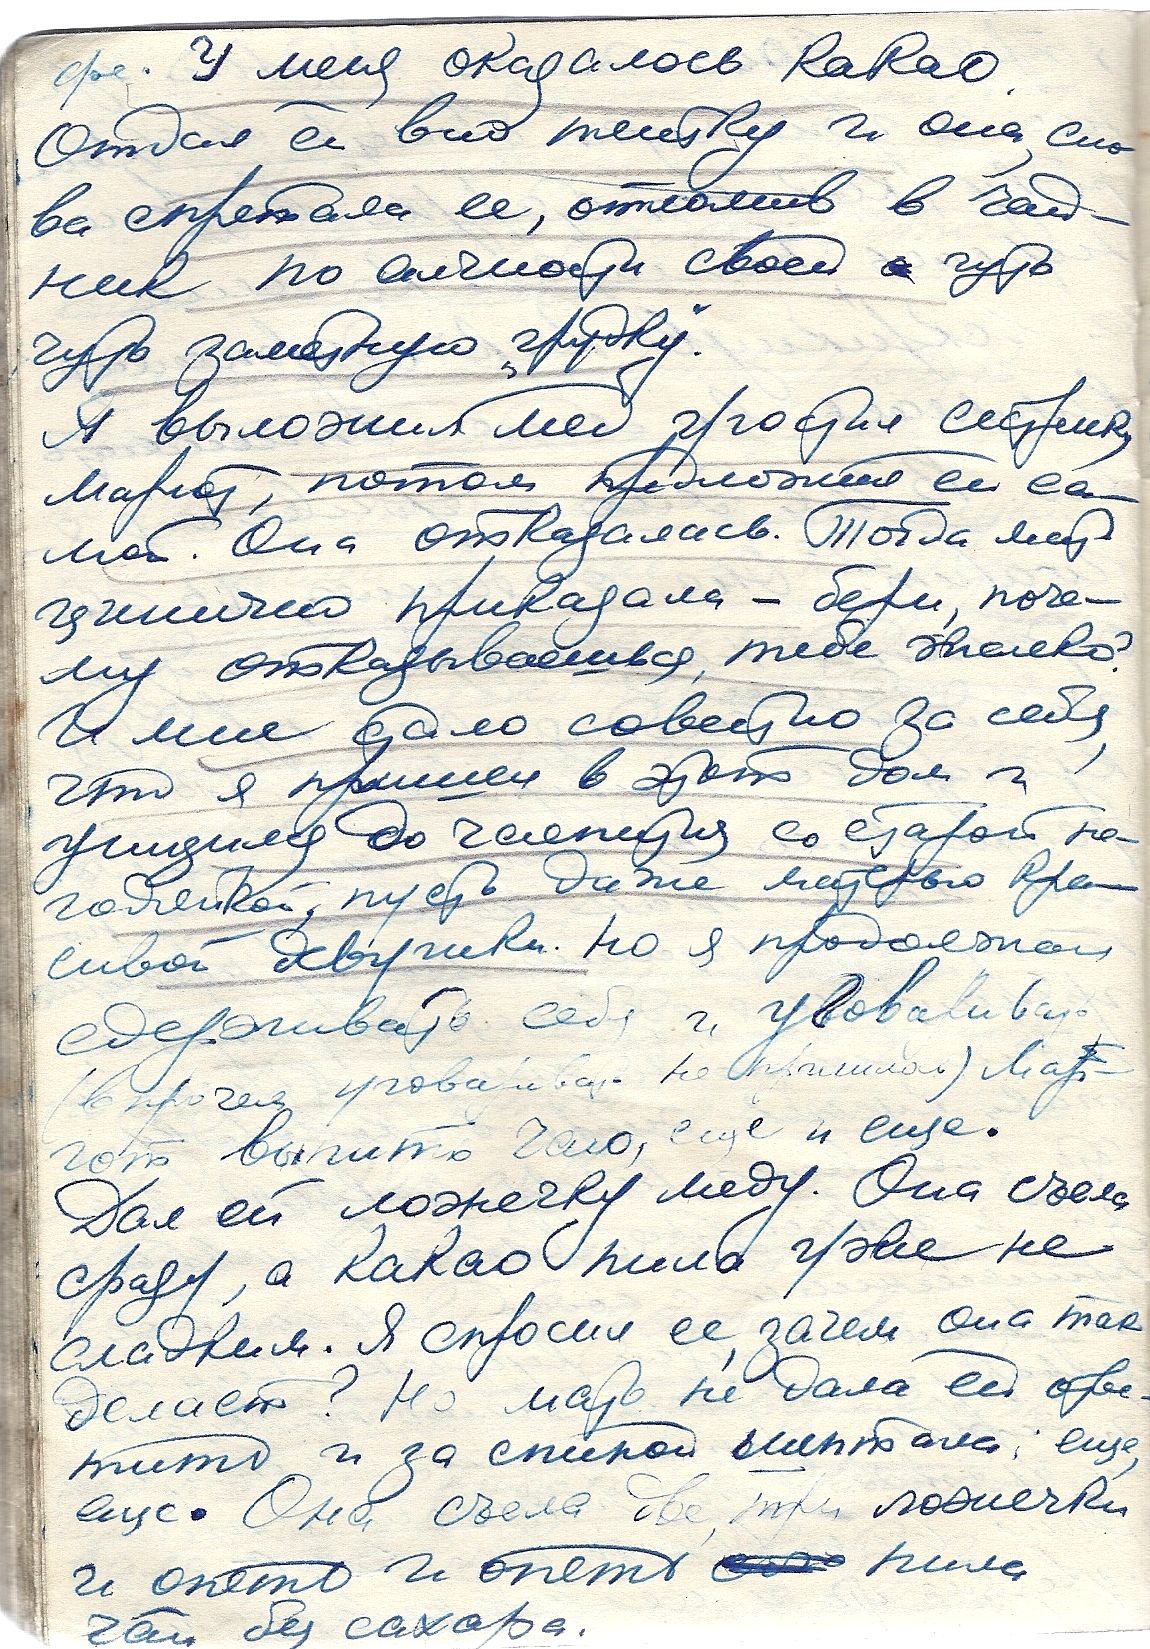 фе. У меня оказалось какао.
Отдал ей вид плитку и она, сно-
ва спретала ее, отломив в чай-
ник по алчности своей чуть
чуть заметную „грудку".
Я выложил мед угостил сестренку
Марго, потом предложил ей са-
мой. Она отказалась. Тогда мать
цинично приказала – бери, поче-
му отказываешься, тебе жалко?
И мне стало совестно за себя,
что я пришел в этот дом и
унизился до чаепития со старой не-
годяйкой, пусть даже матерью кра-
сивой девушки. Но я продолжал
сдерживать себя и уговаривать
(впрочем уговаривать не пришлось) Мар-
гот выпить чаю, еще и еще.
Дал ей ложечку меду. Она съела
сразу, а какао пила уже не
сладким. Я спросил ее, зачем она так
делает? Но мать не дала ей отве-
тить и за спиной шептала: еще,
еще. Она съела две, три ложечки
и опеть и опеть пила
чай без сахара.